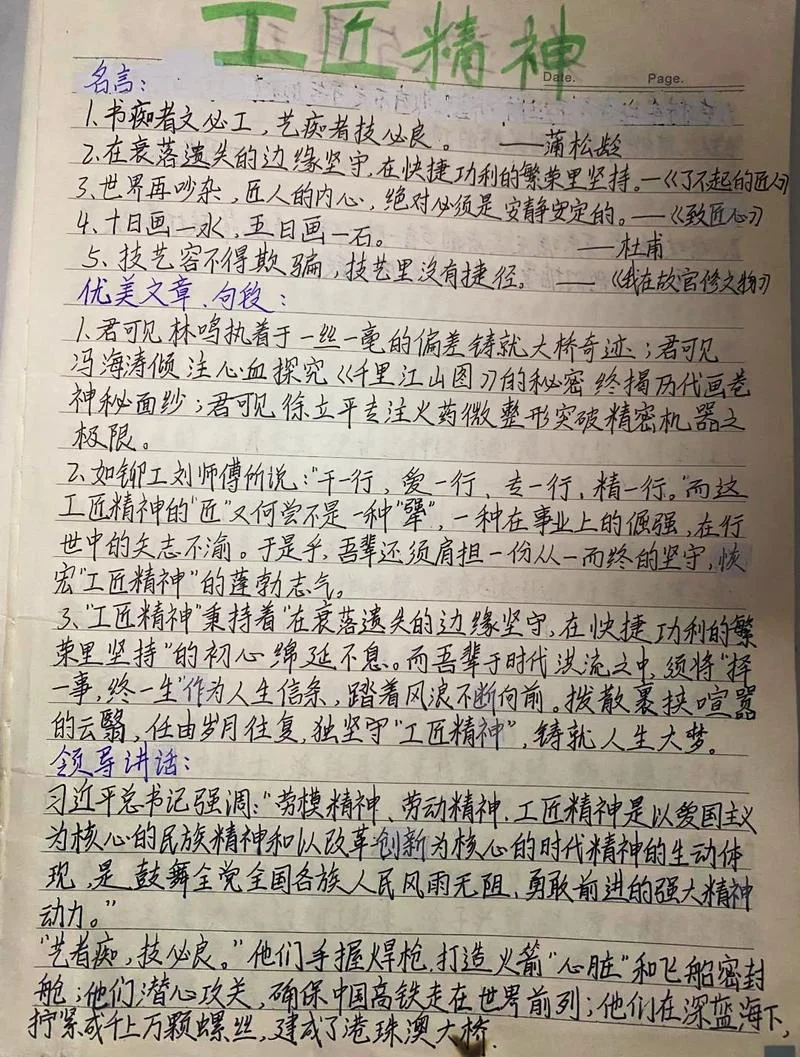 工匠精神
Date. Page.
名言:
1、书痴者文必工,艺痴者技必良。 ——蒲松龄
2、在衰落遗失的边缘坚守,在快捷功利的繁荣里坚持。—《了不起的匠人》
3、世界再吵杂,匠人的内心,绝对必须是安静安定的。——《致匠心》
4、十日画一水,五日画一石。 ——杜甫
5、技艺容不得欺骗,技艺里没有捷径。 ——《我在故宫修文物》
优美文章、句段:
1、君可见林鸣执着于一丝一毫的偏差铸就大桥奇迹;君可见
冯海涛倾注心血探究《千里江山图》的秘密终揭历代画卷
神秘面纱;君可见徐立平专注火药微整形突破精密机器之
极限。
2、如铆工刘师傅所说:"干一行,爱一行、专一行,精一行。"而这
工匠精神的"匠"又何尝不是一种"犟",一种在事业上的倔强,在行
世中的矢志不渝。于是乎,吾辈还须肩担一份从一而终的坚守,恢
宏"工匠精神"的蓬勃志气。
3、"工匠精神"秉持着"在衰落遗失的边缘坚守,在快捷功利的繁
荣里坚持"的初心绵延不息。而吾辈于时代洪流之中,须将"择
一事,终一生"作为人生信条,踏着风浪不断向前。拨散裹挟喧嚣
的云翳,任由岁月往复,独坚守"工匠精神",铸就人生大梦。
领导讲话:
习近平总书记强调:"劳模精神、劳动精神、工匠精神是以爱国主义
为核心的民族精神和以改革创新为核心的时代精神的生动体
现,是鼓舞全党全国各族人民风雨无阻、勇敢前进的强大精神
动力。"
"艺者痴,技必良。"他们手握焊枪,打造火箭"心脏"和飞船密封
舱;他们潜心攻关,确保中国高铁走在世界前列;他们在深蓝海下,
拧紧成千上万颗螺丝,建成了港珠澳大桥.